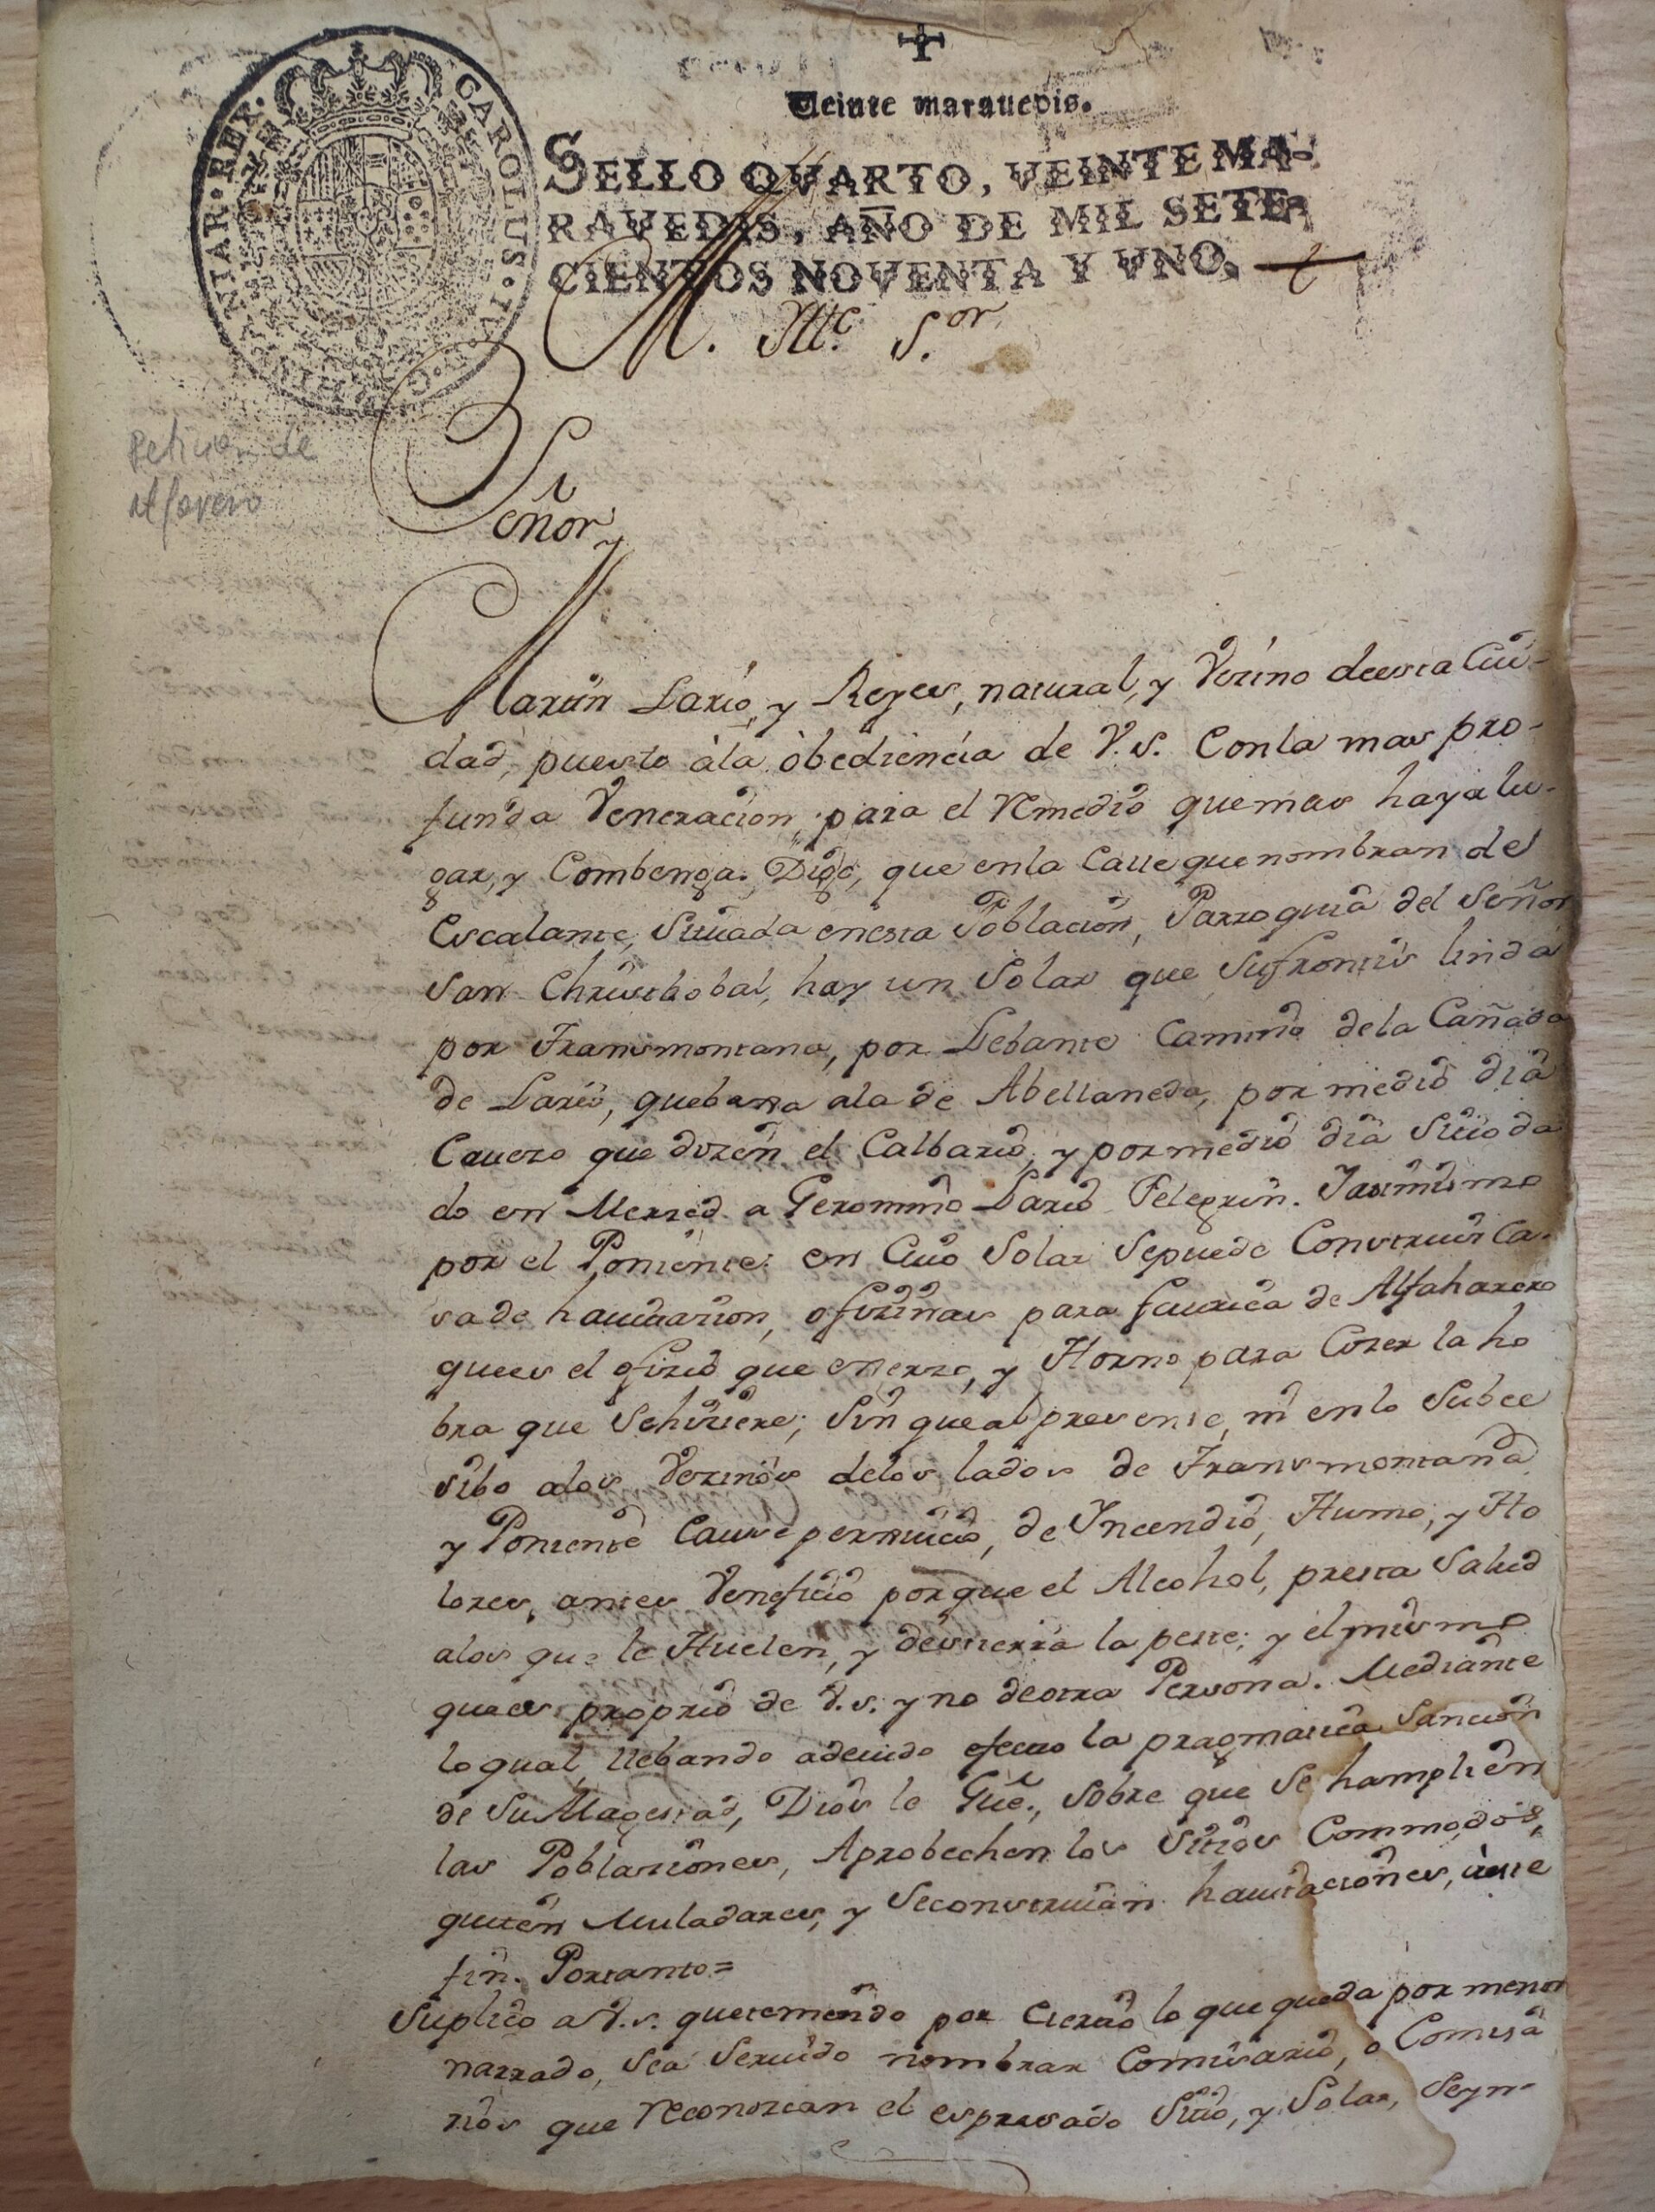 Veinte marauedis.
SELLO QVARTO, VEINTE MA-
RAVEDIS, AÑO DE MIL SETE-
CIENTOS NOVENTA Y VNO.
CAROLUS · IV · D · G · HISPANIAR · REX ·
M. Iltc. S.or
Peticion de
alfarero
Señor
Martin Lario, y Reyes, natural, y Vezino deesta Ciu-
dad, puesto àla òbediencia de V.S. Conla mas pro-
funda Veneracion, para el remedio quemas haya lu-
gar, y Combenga. Digo, que enla Calle que nombran del
Escalante, Situada enesta Poblacion, Parroquia del Señor
San Christhobal, hay un Solar que Sufrontis linda
por Transmontana, por Lebante Camino dela Cañada
de Lario, quebaxa ala de Abellaneda, por medio dia
Cauezo que dizen el Calbario, y pormedio dia Sitio da
do en Merzed a Geronimo Lario Felegrin. Iasimismo
por el Poniente: en Cuio Solar Sepuede Construir Ca-
sade hauitazion, ofizinas para faurica de Alfaharero
quees el ofizio que exerzo, y Horno para Cozer la ho
bra que Sehiziere; Sin queal presente, ni enlo Subce
sibo alos Vezinos delos lados de Transmontana
y Poniente Cause perxuicio, de Yncendio, Humo, y Ho
lores, antes Veneficio porque el Alcohol, presta Salud
alos que le Huelen, y destierra la peste; y el mismo
quees proprio de V.S. y no deotra Persona. Mediante
loqual, llebando adeuido efecto la pragmatica Sancion
de Su Magestad, Dios le Gue., Sobre que Se hamplien
las Poblaziones, Aprobechen los Sitios Commodos,
quiten Muladares, y Seconstruian hauitaciones, àeste
fin. Portanto=
Suplico a V.S. queteniendo por Cierto lo que queda por menor
narrado, Sea Seruido nombrar Comisario, o Comisa
rios que reconozcan el espresado Sitio, y Solar, Seyn-